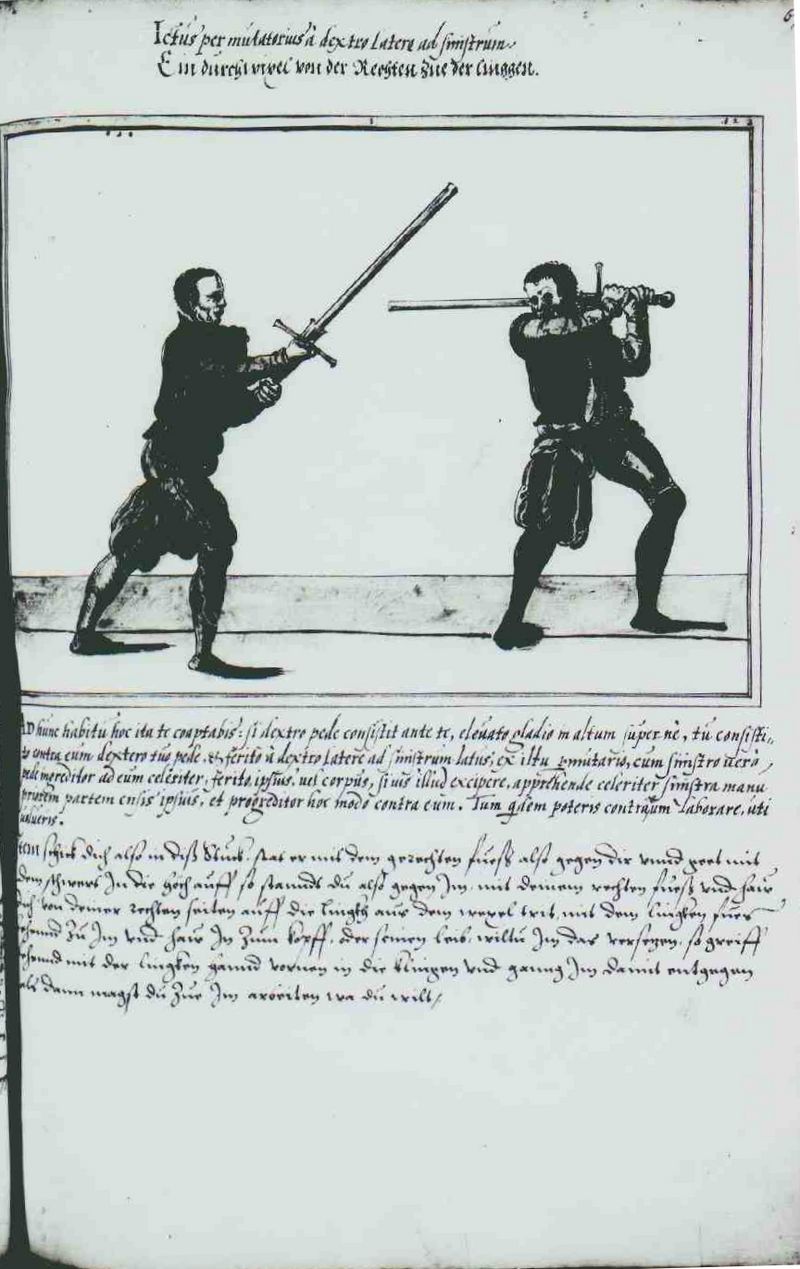 Ictus per mutatorius à dextro latere ad sinistrum.
Ein durchwexel von der Rechten zue der linggen.
AD hunc habitũ hoc ita te coaptabis: si dextro pede consistit ante te, eleuato gladio in altum superne, tũ consisti-
to contra eum dextero tuo pede, & ferito à dextro latere ad sinistrum latus, ex ictu ꝑmutario, cum sinistro uero
pede ingreditor ad eum celeriter, ferito ipsius uel corpus, si uis illud excipere, apprehende celeriter sinistra manu
priorem partem ensis ipsius, et progreditor hoc modo contra eum. Tum quidem poteris contra eum laborare, uti
uolueris.
Item schick dich also in diß Stuck. stat er mit dem gerechten fuesß alsß gegen dir vnnd geet mit
dem schwert In die höch auff so stannds du alsß gegen Im, mit deinem rechten fuesß vnd haw
Ich von deiner rechten seiten auff die lingkh aus dem wexel trit, mit dem lingken fues
ehennd zu Im vnd haw In zum kopff, oder seinen leib, wiltu Im das versetzen, so greiff
ehennd mit der lingken hannd vornen in die klingen vnd ganng Im damit entgegen
als dann magst du zue Im arbeiten wa du wilt